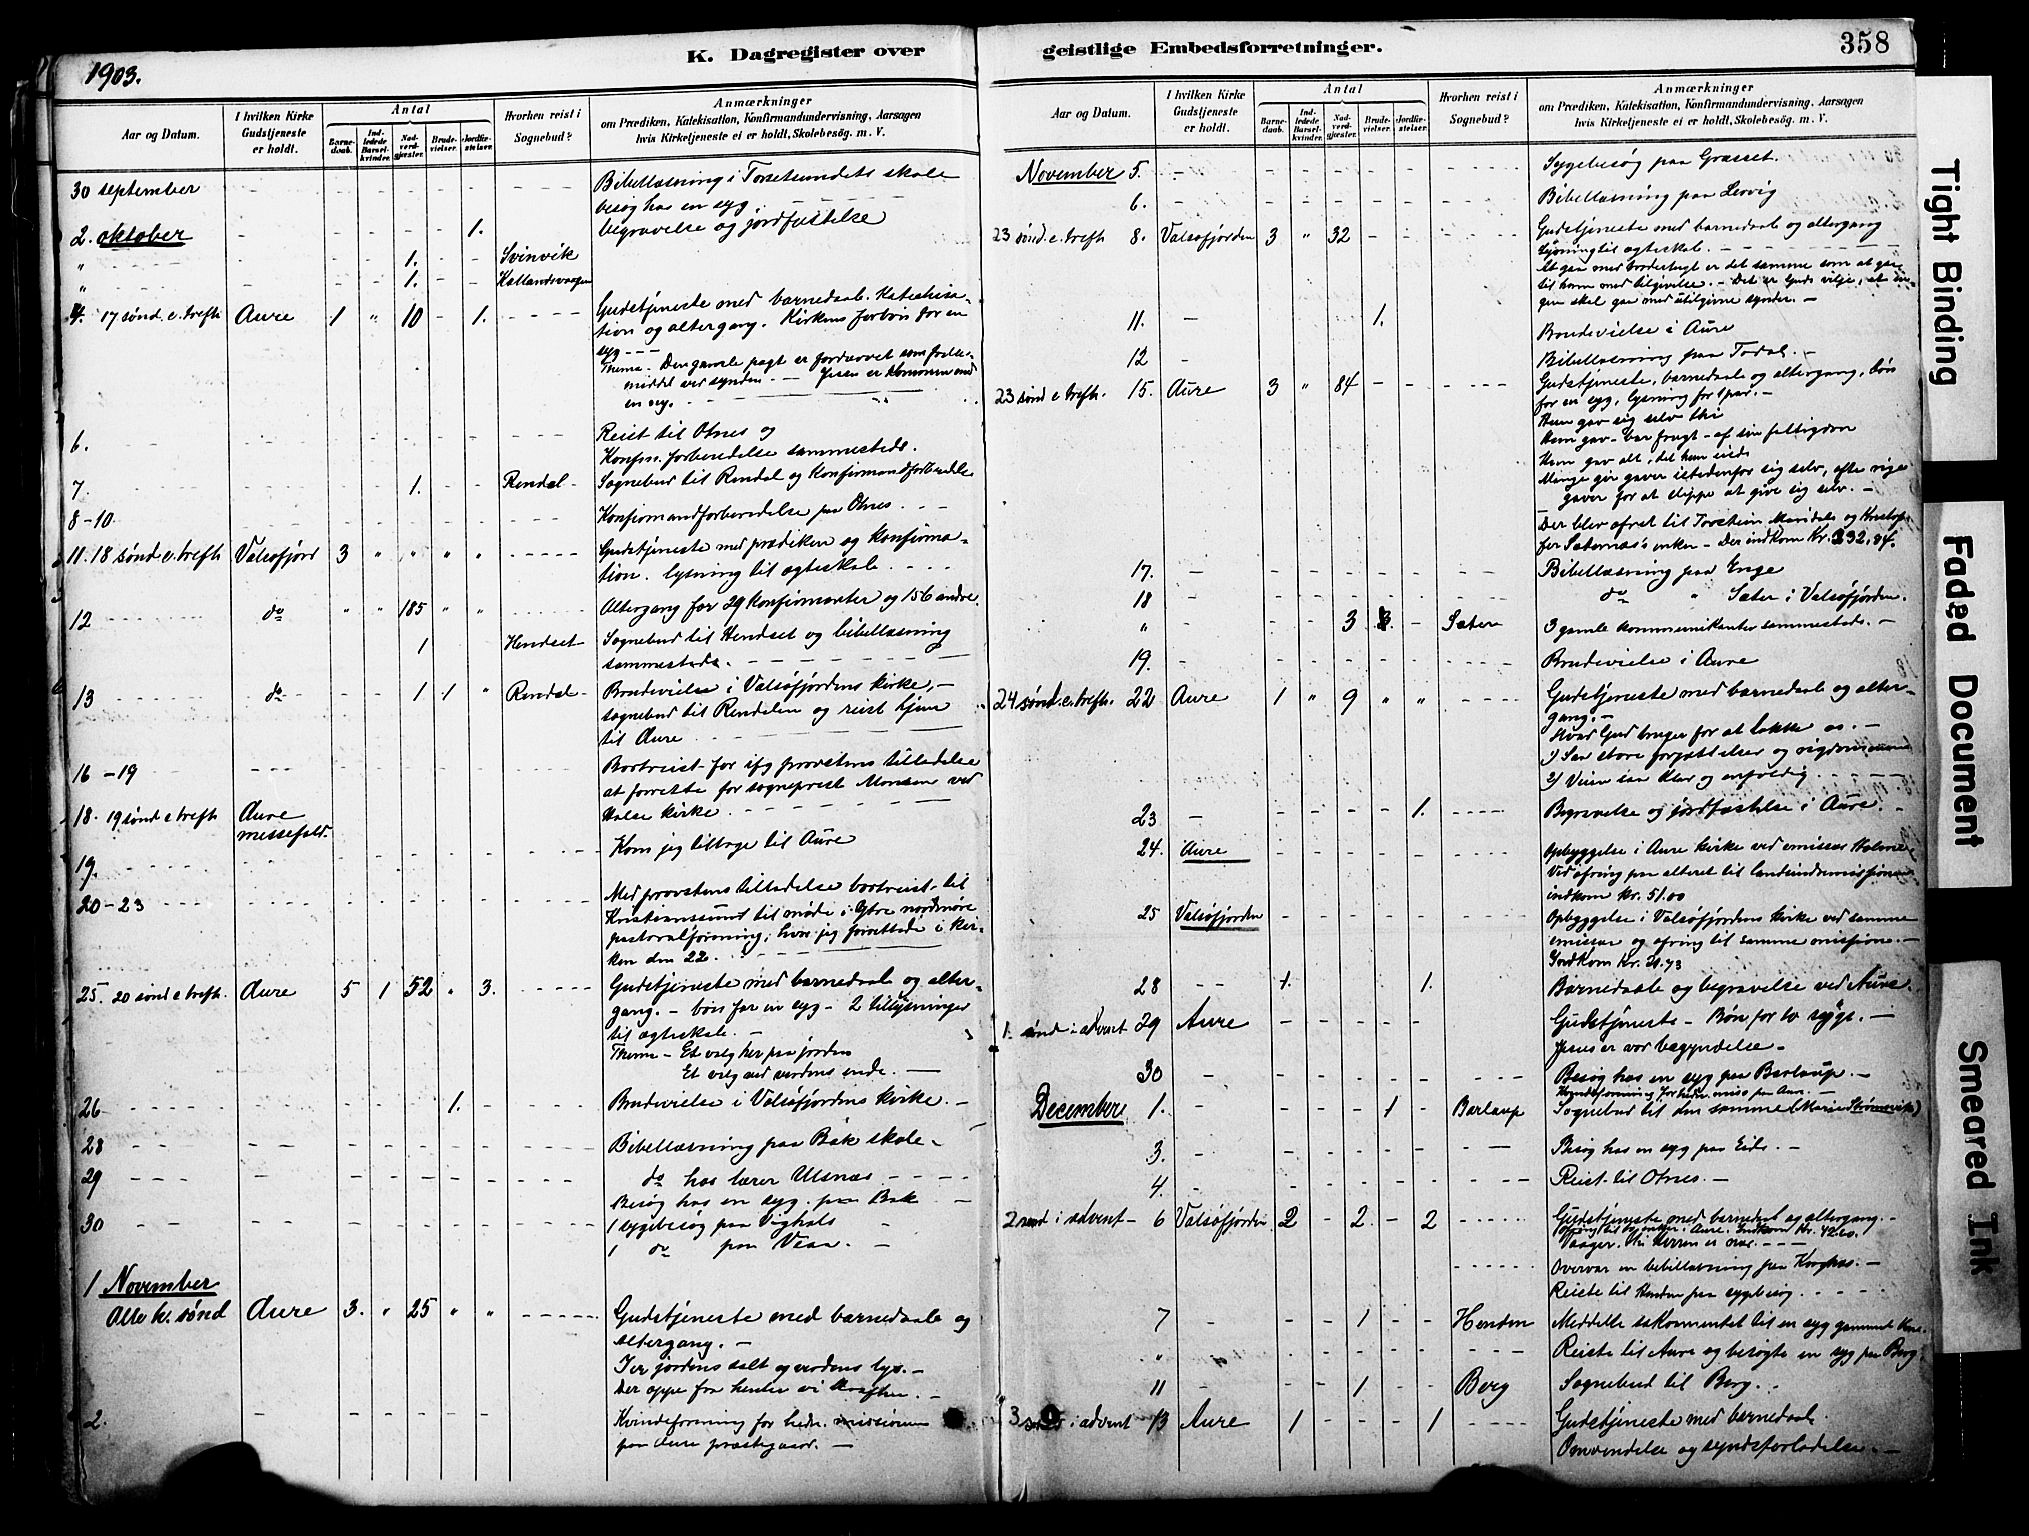 358
K. Dagregister over geistlige Embedsforretninger.
1903.
Aar og Datum.
I hvilken Kirke Gudstjeneste er holdt.
Antal
Barnedaab.
Indledede Barselkvinder.
Nadverdgjæster.
Brudevielser.
Jordfæstelser.
Hvorhen reist i Sognebud?
Anmærkninger
om Prædiken, Katekisation, Konfirmandundervisning, Aarsagen
hvis Kirketjeneste ei er holdt, Skolebesøg. m. V.
30 september - - - - - - Bibellæsning i Torsetsundets skole
besøg hos en syg.
2. oktober - - - - 1. begravelse og jordfæstelse
" 1. - - Svinvik
" 1. - - Kallandsvaagen
4. 17 sønd. e. trefh Aure 1 " 10 - 1. - - - - Gudstjeneste med barnedaab. Katechisa-
tion og altergang. Kirkens forbøn for en
syg - - -
Thema - Den gamle pagt er fordærvet som frelses-
middel ved synden. - Jesus er kommen med
en ny.
6. Reist til Otnes og
Konfm. forberedelse sammesteds.
7 1. - - Rendal - Sognebud til Rendal og konfirmandforberedelse
8-10 Konfirmandforberedelse paa Otnes. - - -
11. 18 sønd. e. trefh Valsøfjord 3 " " " " - - - - - Gudstjeneste med prædiken og konfirma-
tion. lysning til ægteskab. - - - -
12 do " " 185 " " Altergang for 29 konfirmanter og 156 andre.
1 Hendset Sognebud til Hendset og bibellæsning
sammesteds.
13 do - - 1 1 " Rendal - Brudevielse i Valsøfjordens kirke, -
sognebud til Rendalen og reist hjem
til Aure
16-19 - - - Bortreist for ifg provstens tilladelse
at forrette for sogneprest Monsen ved
18. 19 sønd e trefh Aure Halse kirke.
messefald.
19. Kom jeg tilbage til Aure
20-23 Med provstens tilladelse bortreist til
Kristianssund til møde i Ytre nordmøre
pastoralforening, hvor jeg forrettede i kir-
ken den 22.
25. 20 sønd e trefh. Aure 5 1 52 " 3. - - - - Gudstjeneste med barnedaab og alter-
gang. - bøn for en syg - 2 tillysninger
til ægteskab. -
Thema - Et valg her paa jorden
Et valg ved verdens ende. -
26 1. Brudevielse i Valsøfjordens kirke. -
28 Bibellæsning paa Bæk skole -
29 do hos lærer Ulsnæs - - - -
Besøg hos en syg. paa Bæk -
30 1 sygebesøg paa Vighals
1 do paa Vean. -
1 November
Alle h. sønd Aure 3. " 25 " " - - - - - Gudstjeneste med barnedaab og
altergang. -
I er jordens salt og verdens lys. -
Der oppe fra henter vi kraften. -
2. Kvindeforening for hedn. missionen
paa Aure præstegaard. -
Aar og Datum.
I hvilken Kirke Gudstjeneste er holdt.
Antal
Barnedaab.
Indledede Barselkvinder.
Nadverdgjæster.
Brudevielser.
Jordfæstelser.
Hvorhen reist i Sognebud?
Anmærkninger
om Prædiken, Katekisation, Konfirmandundervisning, Aarsagen
hvis Kirketjeneste ei er holdt, Skolebesøg. m. V.
November 5. Sygebesøg paa Grasset.
6. Bibellæsning paa Lervig
23 sønd. e. trefh 8. Valsøfjorden 3 " 32 - - Gudstjeneste med barnedaab og altergang
Lysning til ægteskab. -
At gaa med brodertugt er det samme som at gaa
til ham med tilgivelse. - Det er Guds vilje, at in-
gen skal gaa med utilgivne synder. -
11. - 1. Brudevielse i Aure
12 - Bibellæsning paa Todal. -
23 sønd e trefh. 15. Aure 3 " 84 - - Gudstjeneste, barnedaab og altergang, bøn
for en syg, lysning for 1 par. -
Hun gav sig selv thi
Hun gav - bar frugt - af sin fattigdom
Hun gav alt, det hun eiede
Mange gir gaver istedenfor sig selv, ofte rige
gaver for at slippe at give sig selv. -
- Der blev ofret til Torstein Maridals og Kristof-
fer Sæternæs's enker - Der indkom Kr. 232,84.
17. - Bibellæsning paa Enge
18 do " Sæter i Valsøfjorden.
" 3 - Sæter 3 gamle kommunikanter sammesteds. -
19. - Brudevielse i Aure
24 sønd. e. trefh. 22 Aure 1 " 9 " " Gudstjeneste med barnedaab og alter-
gang. -
Hvad Gud bruger for at lokke os. -
1) Saa store forjættelser og rigdomme
2) Veien saa klar og enfoldig
23 - 1. Begravelse og jordfæstelse i Aure. -
24. Aure Opbyggelse i Aure kirke ved emissær Holme
Ved ofring paa alteret til landsindremissionen
indkom kr. 51.00
25 Valsøfjorden Opbyggelse i Valsøfjordens kirke ved samme
emissær og ofring til samme mission. -
Indkom Kr. 21.73
28 - - 1. 1. Barnedaab og begravelse ved Aure.
1. sønd i advent 29 Aure Gudstjeneste - Bøn for to syge. -
Jesus er vor begyndelse -
30 - Besøg hos en syg paa Barlaup. -
Kvindeforening for hedn. miss paa Aure. -
December 1. - 1 - Barlaup Sognebud til den samme (Marie Strømsvik)
3. - Besøg hos en syg paa Eide. -
4. - Reist til Otnes. -
2 sønd i advent - 6 Valsøfjorden 2 - 2 - 2 Gudstjeneste med barnedaab og altergang. -
Vaager, thi Herren er nær. - - -
Overvar en bibellæsning paa
Reiste til Henden paa sygebesøg
7 - - - 1 - - Henden Meddelte sakramentet til en syg gammel
" Reiste til Aure og besøgte en syg paa Berg.
11 - - - 1 - - Berg Sognebud til Berg.
3 sønd i advent 13 Aure 1 1 Gudstjeneste med barnedaab.
Omvendelse og syndsforladelse. -
Tight Binding
Faded Document
Smeared Ink